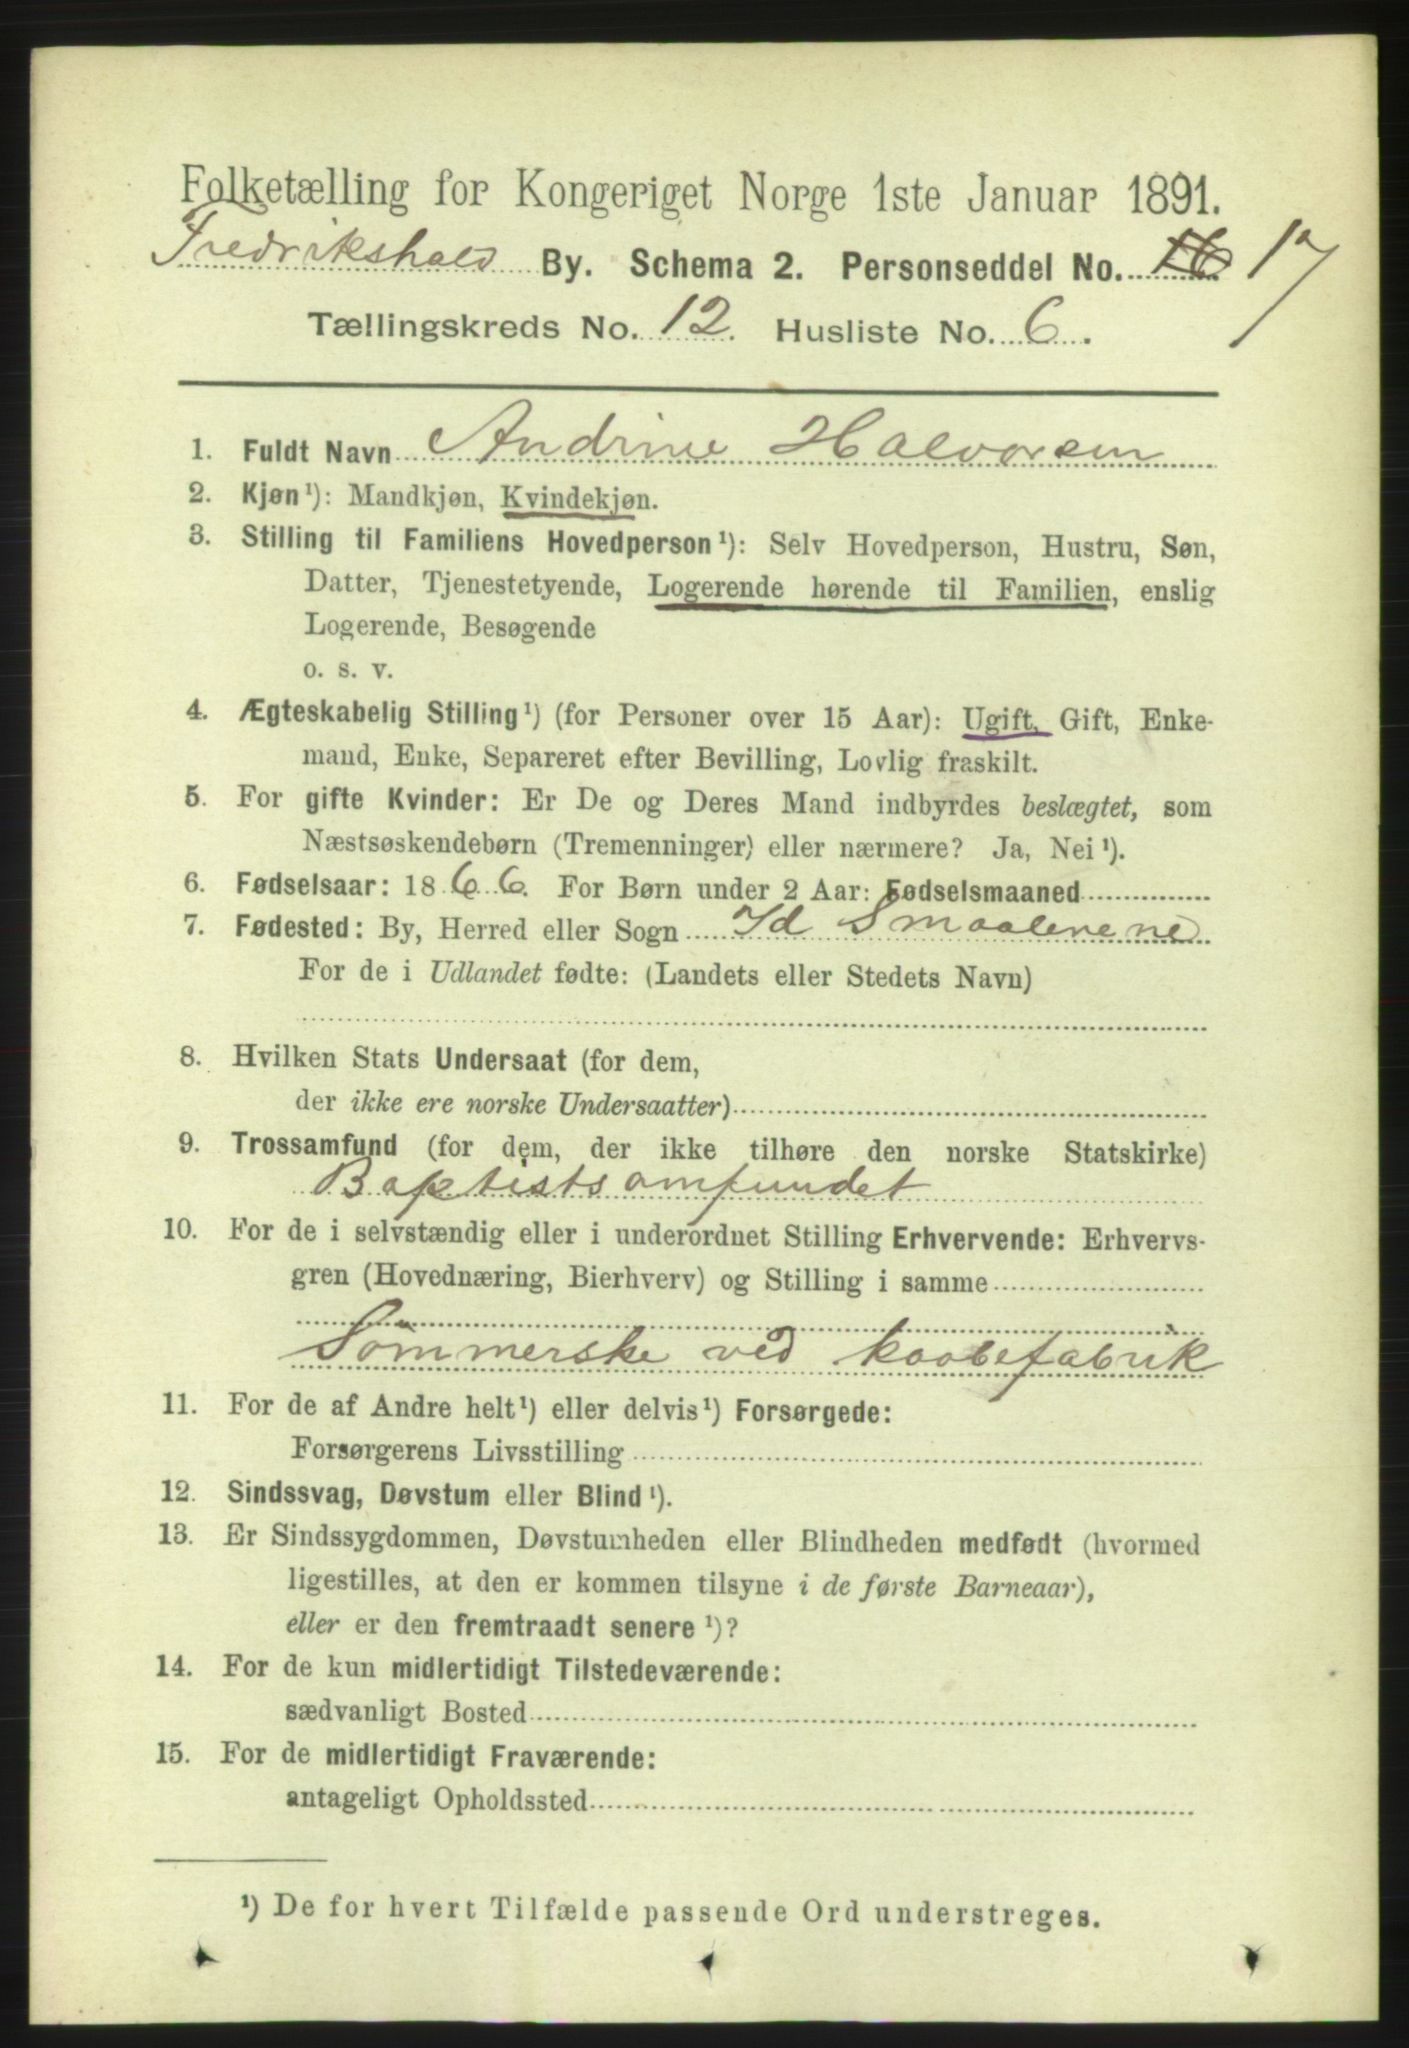 Folketælling for Kongeriget Norge 1ste Januar 1891.
Fredrikshald By. Schema 2. Personseddel No. 16 17
Tællingskreds No. 12. Husliste No. 6.
1. Fuldt Navn Andrine Halvorsen
2. Kjøn¹): Mandkjøn, Kvindekjøn.
3. Stilling til Familiens Hovedperson¹): Selv Hovedperson, Hustru, Søn,
Datter, Tjenestetyende, Logerende hørende til Familien, enslig
Logerende, Besøgende
o. s. v.
4. Ægteskabelig Stilling¹) (for Personer over 15 Aar): Ugift, Gift, Enke-
mand, Enke, Separeret efter Bevilling, Lovlig fraskilt.
5. For gifte Kvinder: Er De og Deres Mand indbyrdes beslægtet, som
Næstsøskendebørn (Tremenninger) eller nærmere? Ja, Nei¹).
6. Fødselsaar: 1866. For Børn under 2 Aar: Fødselsmaaned
7. Fødested: By, Herred eller Sogn Id Smaalenene
For de i Udlandet fødte: (Landets eller Stedets Navn)
8. Hvilken Stats Undersaat (for dem,
der ikke ere norske Undersaatter)
9. Trossamfund (for dem, der ikke tilhøre den norske Statskirke)
Baptistsamfundet
10. For de i selvstændig eller i underordnet Stilling Erhvervende: Erhvervs-
gren (Hovednæring, Bierhverv) og Stilling i samme
Sömmerske ved kaabefabrik
11. For de af Andre helt¹) eller delvis¹) Forsørgede:
Forsørgerens Livsstilling
12. Sindssvag, Døvstum eller Blind¹).
13. Er Sindssygdommen, Døvstumheden eller Blindheden medfødt (hvormed
ligestilles, at den er kommen tilsyne i de første Barneaar),
eller er den fremtraadt senere¹)?
14. For de kun midlertidigt Tilstedeværende:
sædvanligt Bosted
15. For de midlertidigt Fraværende:
antageligt Opholdssted
¹) De for hvert Tilfælde passende Ord understreges.